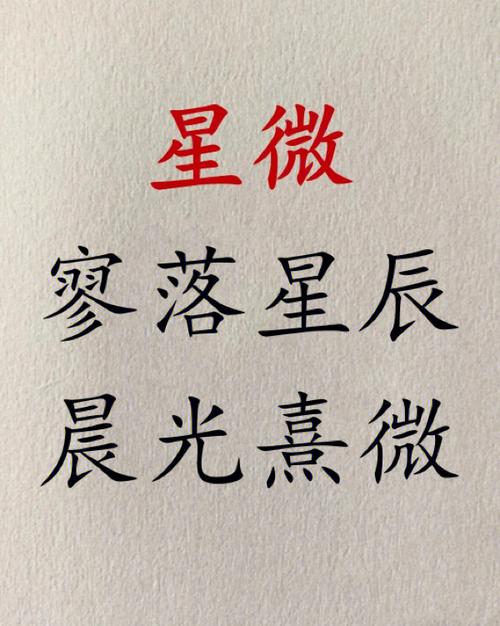 星微
寥落星辰
晨光熹微